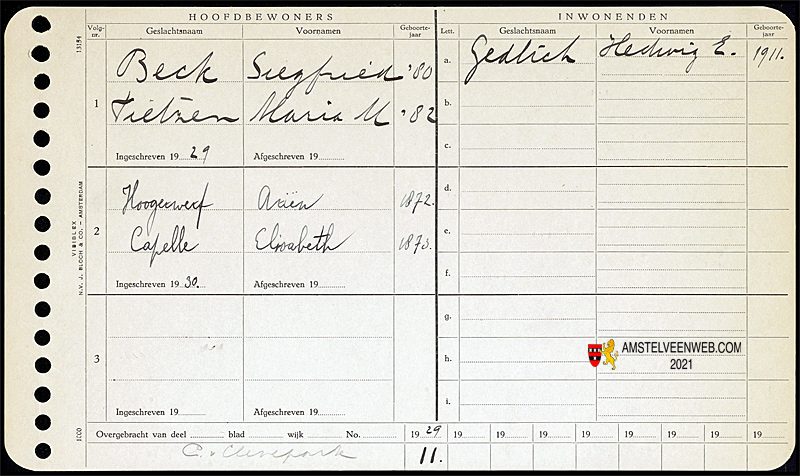 HOOFDBEWONERS
INWONENDEN
Volg-nr. Geslachtsnaam Voornamen Geboorte-jaar
Lett. Geslachtsnaam Voornamen Geboorte-jaar
13154
1
Beck Siegfried '80
Tietzen Maria M '82
Ingeschreven 19 29 Afgeschreven 19
a. Gedlich Hedwig E. 1911.
b.
c.
2
Hoogerwerf Ariën 1872.
Capelle Elisabeth 1873.
Ingeschreven 19 30. Afgeschreven 19
d.
e.
f.
3
Ingeschreven 19 Afgeschreven 19
g.
h.
i.
VISIBLEX
N.V. J. BLOCH & CO. – AMSTERDAM
AMSTELVEENWEB.COM
2021
1000
Overgebracht van deel blad wijk No. 19 29 19 19 19 19 19 19 19 19
11.